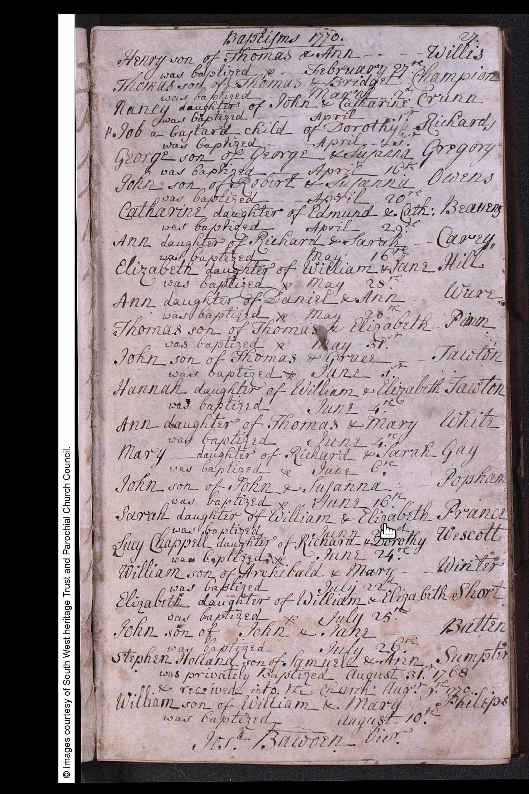 Baptisms 1770. 27.
Henry son of Thomas & Ann - - - Willis
was baptized February 27th
Thomas son of Thomas & Bridget Champion
was baptized March 2d
Nancy daughter of John & Catharine Crunn
was baptized April
Job a bastard child of Dorothy Richards
was baptized April
George son of George & Susanna Gregory
was baptized April 16th
John son of Robert & Susanna Owens
was baptized April 20th
Catharine daughter of Edmund & Cath: Beavens
was baptized April 29th
Ann daughter of Richard & Sarah - - Carey
was baptized May 16th
Elizabeth daughter of William & Jane Hill
was baptized May 28th
Ann daughter of Daniel & Ann - Ware
was baptized May
Thomas son of Thomas & Elizabeth - Pinn
was baptized May 31st
John son of Thomas & Grace - Tawton
was baptized June 1st
Hannah daughter of William & Elizabeth Tawton
was baptized June 4th
Ann daughter of Thomas & Mary White
was baptized June 4th
Mary daughter of Richard & Sarah Gay
was baptized June 6th
John son of John & Susanna - Popham
was baptized June 16th
Sarah daughter of William & Elizabeth Prance
was baptized
Suy Chappel daughter of Richard & Dorothy Wescott
was baptized June 24th
William son of Archibald & Mary - Winter
was baptized July 22d
Elizabeth daughter of William & Elizabeth Short
was baptized July 25th
John son of John & Jane Batten
was baptized July 26th
Stephen Holland son of Samuel & Ann Sumpter
was privately Baptized August 31st 1768
& received into the Church Augt 1770
William son of William & Mary Philips
was baptized August 10th
Jos: Bawden Vicr
© Images courtesy of South West heritage Trust and Parochial Church Council.